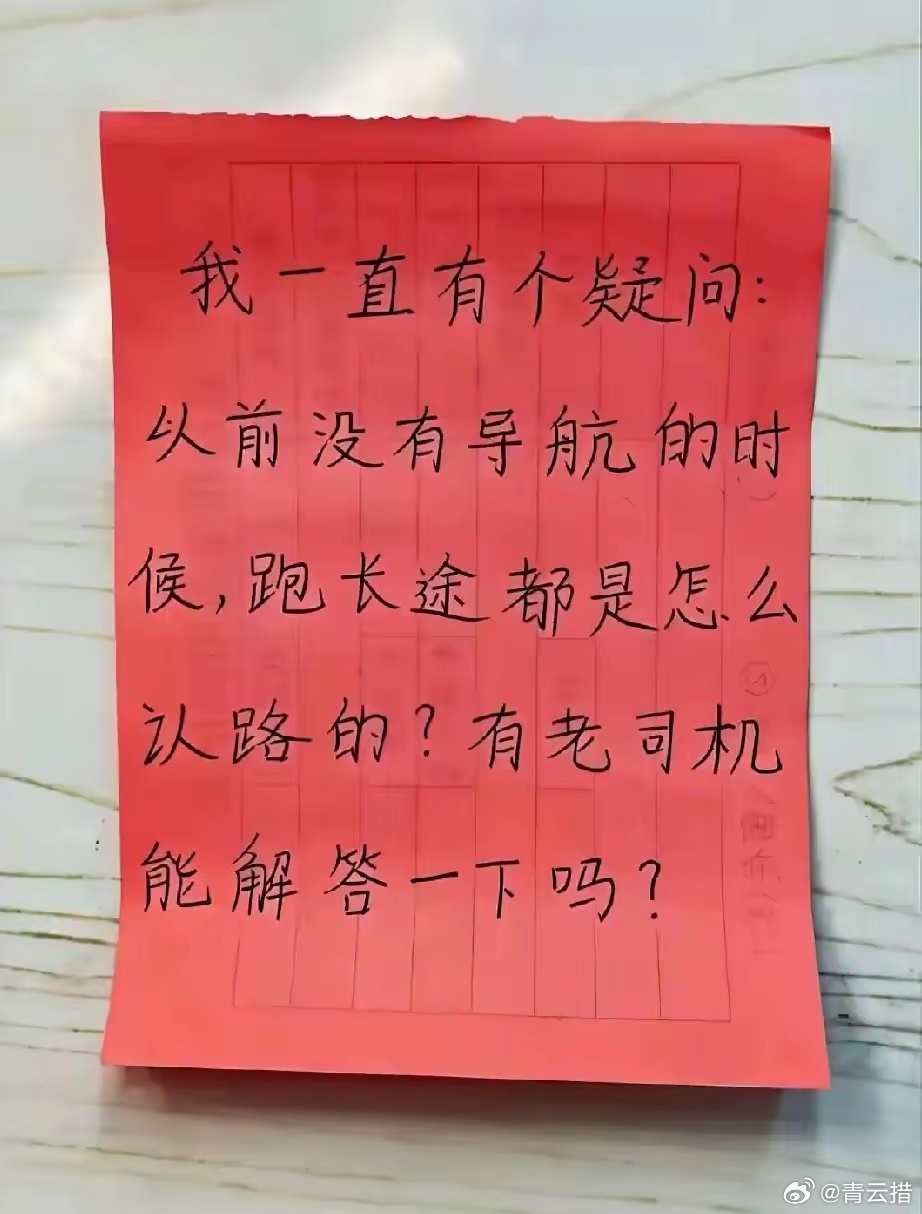 我一直有个疑问：
以前没有导航的时
候，跑长途都是怎么
认路的？有老司机
能解答一下吗？
@青云措